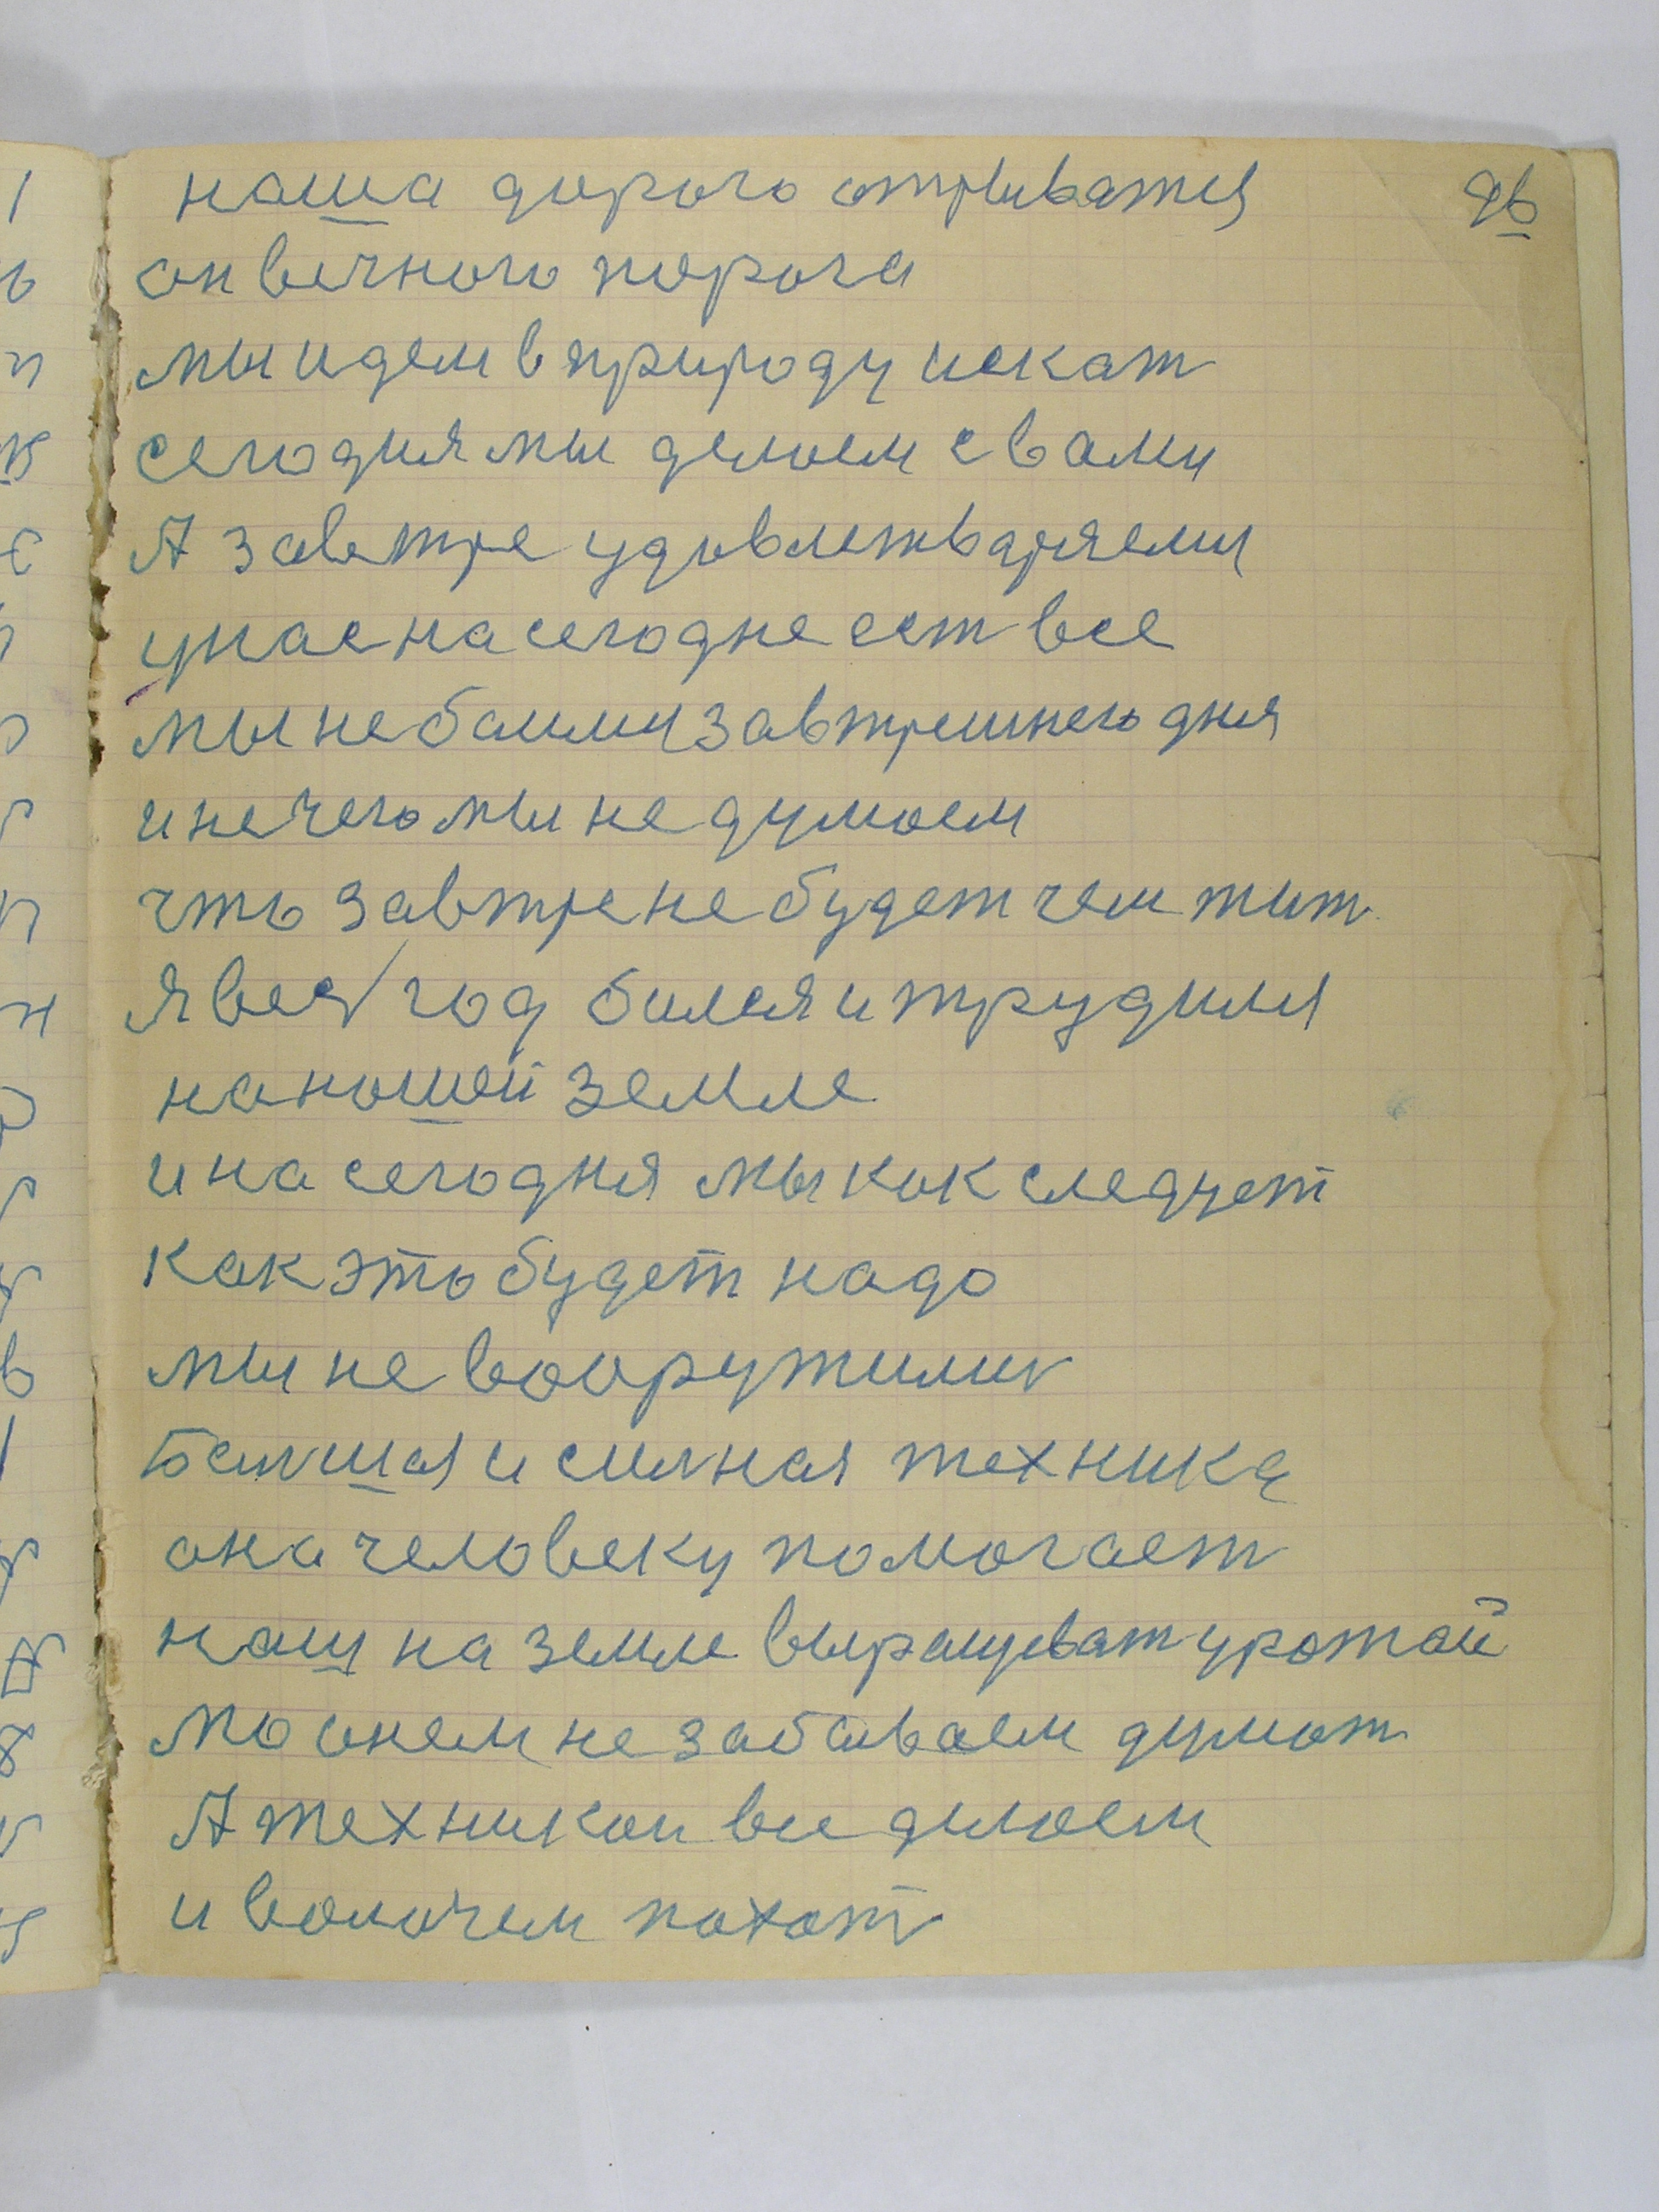 наша дорого отриватся 96
он вечного порога
мы идем в природу искат
сегодня мы делоем с вами
А завтре удовлетваряеми
унас на сегодне ест все
мы не боими завтрешнего дня
и нечего мы не думоем
что завтре не будет чем жит
Я вся/год билея и трудился
на ношей земле
и на сегодня мы кок следует
как это будет надо
мы не вооружими
Болшая и силная техника
она человеку помогает
наш на земле выращеват урожай
мо онем не забоваем думот
А техникои все делоем
и волочем похот